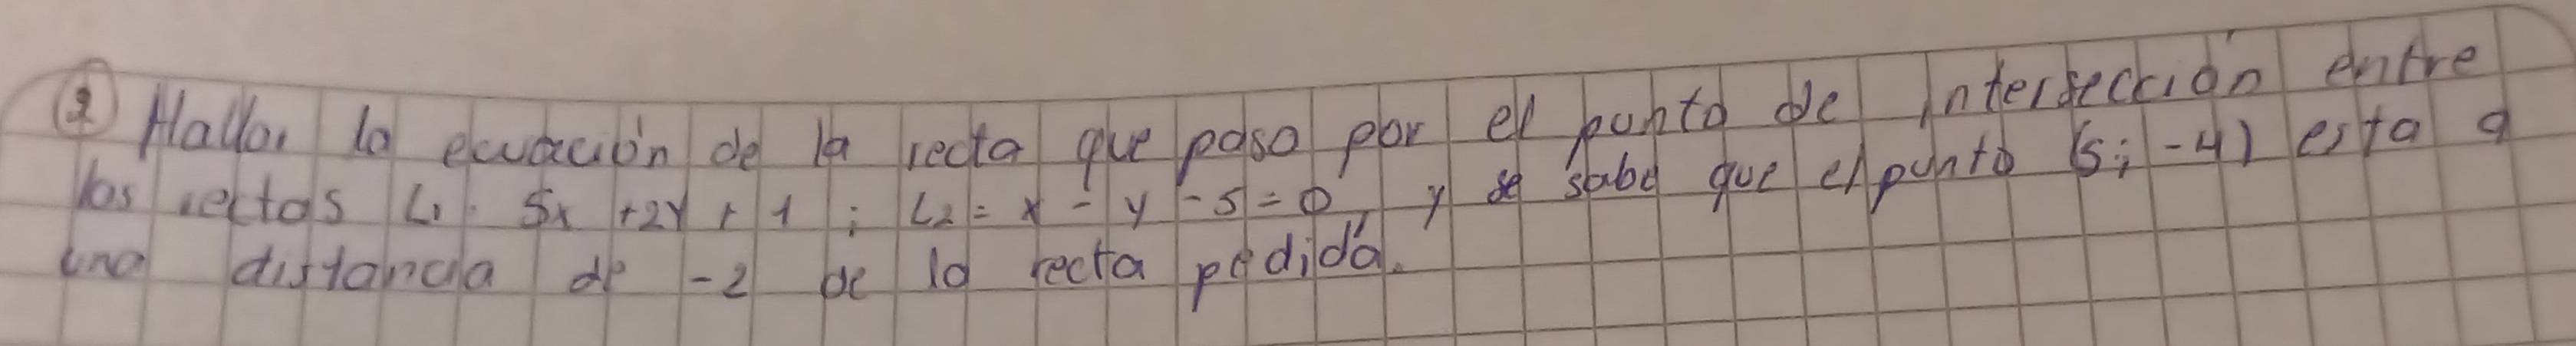 ② Hallar la ecuación de la recta que pasa por el punto de intersección entre
las rectas L1: 5x +2y + 1 ; L2 = x - y - 5 = 0, y se sabe que el punto (5; -4) esta a
una distancia de -2 de la recta pedida.